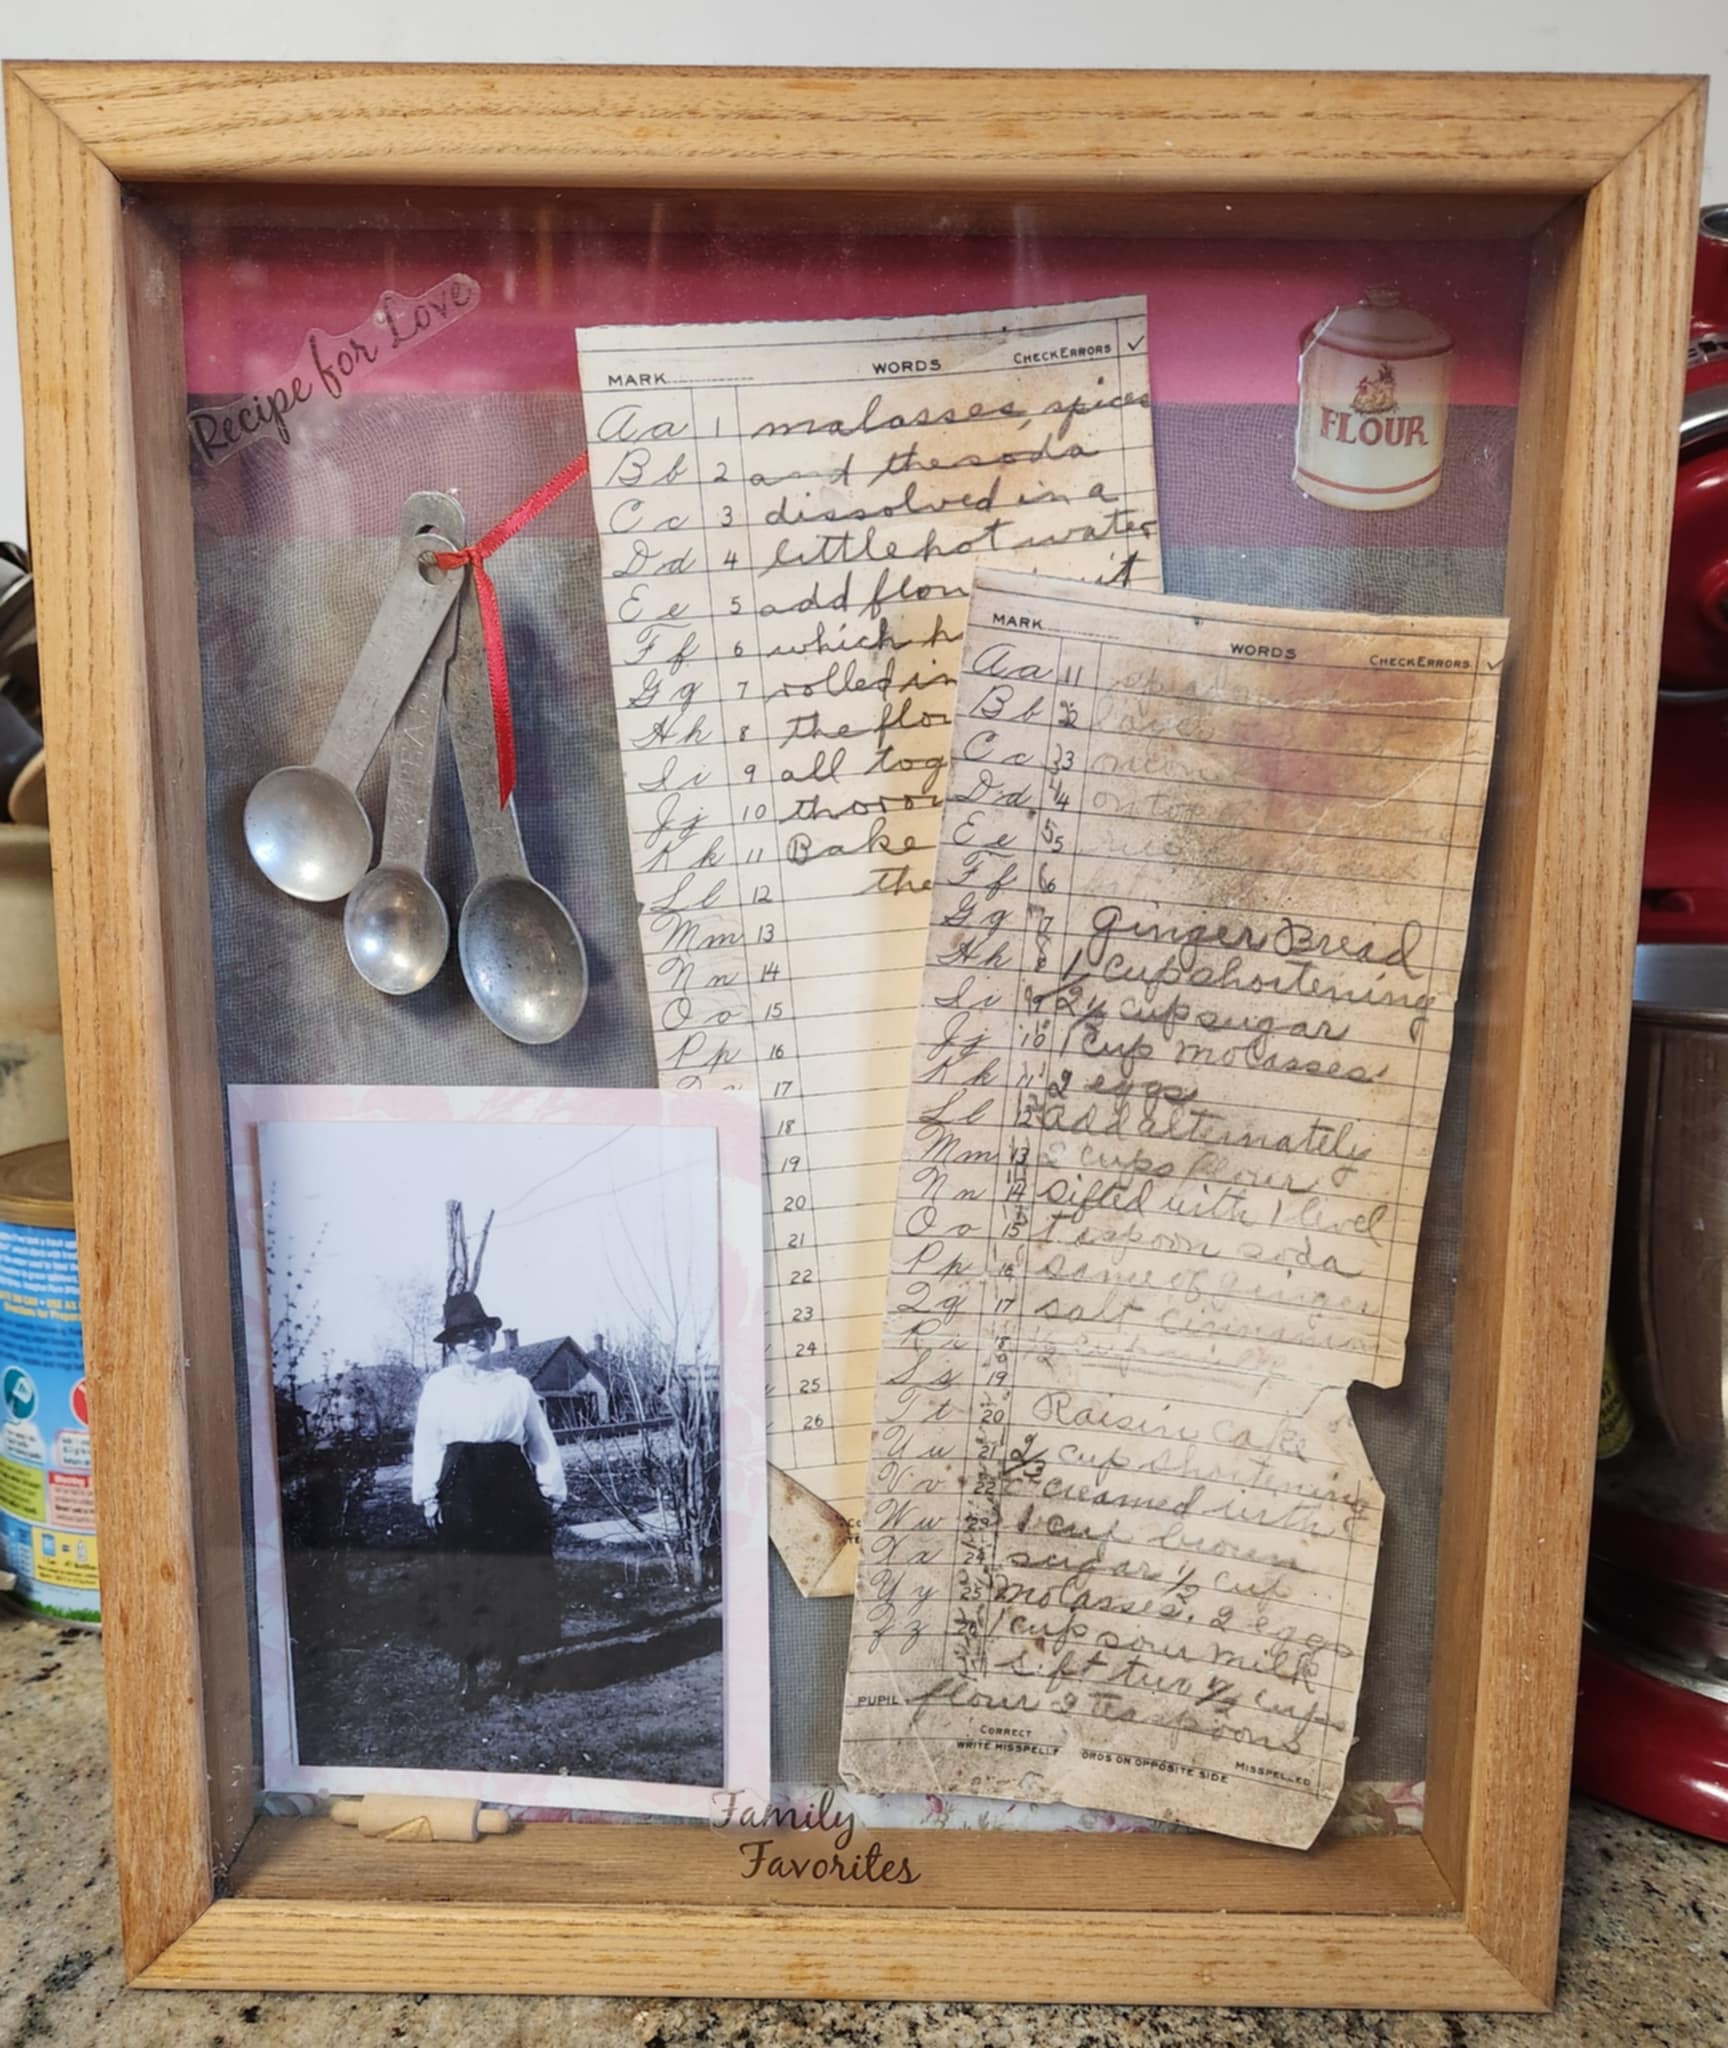 Recipe for Love
FLOUR
MARK WORDS CHECK ERRORS ✓
Aa 1 malasses, spices
Bb 2 and the soda
Cc 3 dissolved in a
Dd 4 little hot water
Ee 5 add flour it
Ff 6 which h
Gg 7 rolled in
Hh 8 the flou
Ii 9 all tog
Jj 10 thorou
Kk 11 Bake
Ll 12 the
Mm 13
Nn 14
Oo 15
Pp 16
17
18
19
20
21
22
23
24
25
26
MARK WORDS CHECK ERRORS ✓
Aa 11
Bb 2 layer
Cc 33 on
Dd 44 on top
Ee 55
Ff 6
Gg 7 Ginger Bread
Hh 8 1 cup shortening
Ii 9 2/3 cup sugar
Jj 10 1 cup molasses
Kk 11 2 eggs
Ll 12 add alternately
Mm 13 2 cups flour
Nn 14 sifted with 1 level
Oo 15 teaspoon soda
Pp 16 same of ginger
Qq 17 salt cinnamon
Rr 18 1/2 cup milk
Ss 19
Tt 20 Raisin Cake
Uu 21 2/3 cup shortening
Vv 22 creamed with
Ww 23 1 cup brown
Xx 24 sugar 1/2 cup
Yy 25 molasses. 2 eggs
Zz 26 1 cup sour milk
sift two 1/2 cups
PUPIL flour 2 teaspoons
CORRECT
WRITE MISSPELL ORDS ON OPPOSITE SIDE MISSPELLED
Family
Favorites